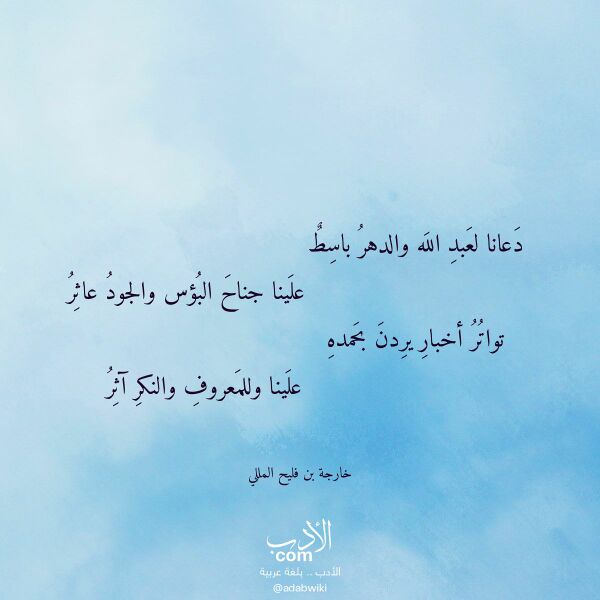 دَعانا لعَبدِ اللَه والدهرُ باسِطٌ
علَينا جناحَ البُؤس والجودُ عاثِرُ
تواتُرُ أخبارِ يرِدنَ بحَمدهِ
علَينا وللمَعروفِ والنكرِ آثِرُ
خارجة بن فليح المللي
الأدب
com
الأدب .. بلغة عربية
@adabwiki